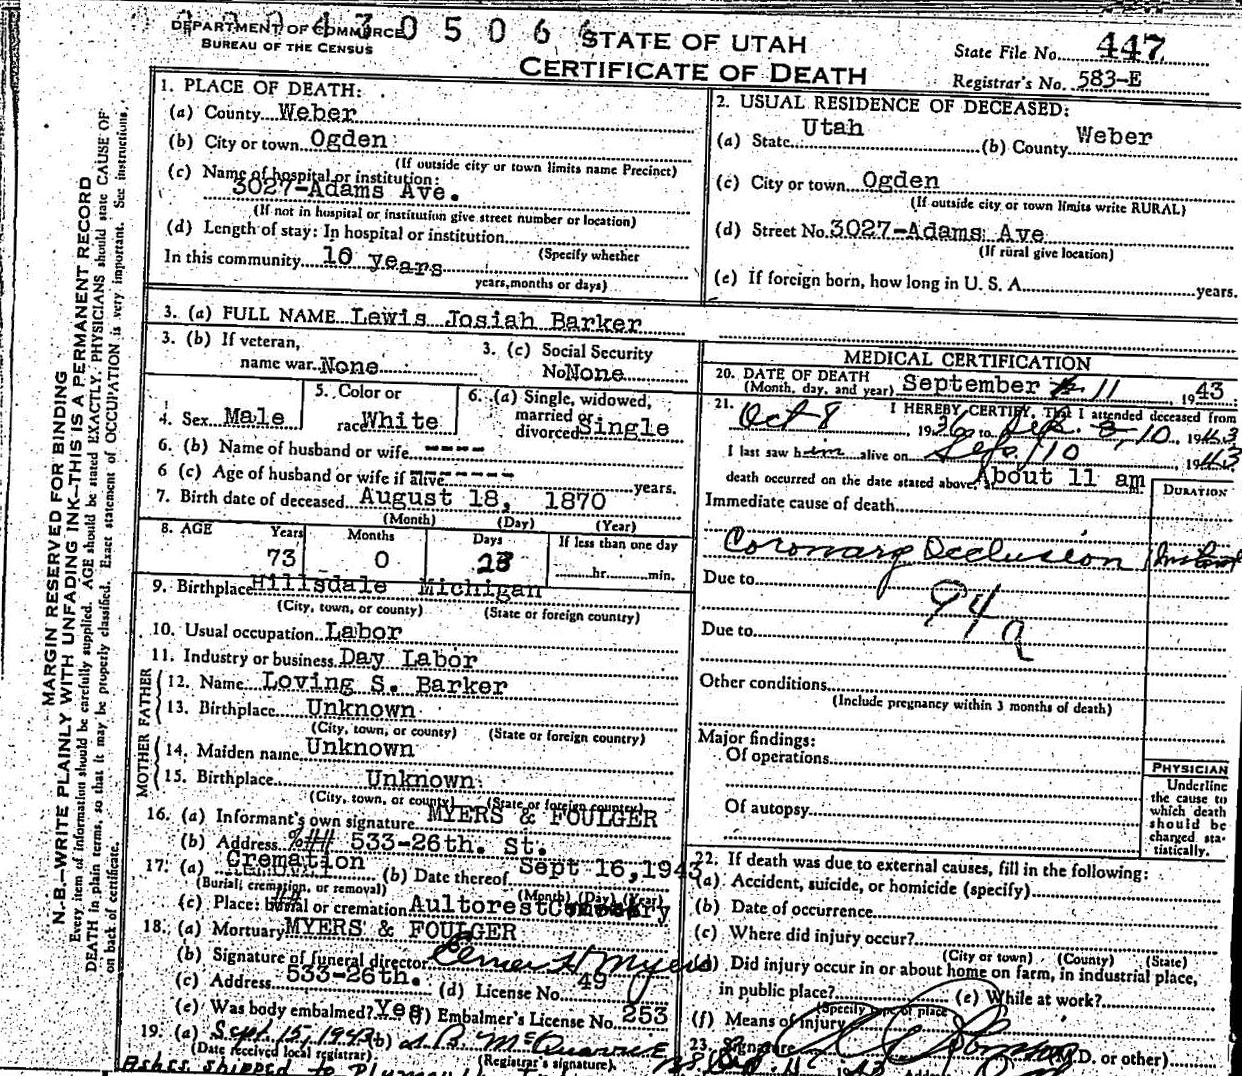 430506
DEPARTMENT OF COMMERCE
BUREAU OF THE CENSUS
STATE OF UTAH
CERTIFICATE OF DEATH
State File No. 447
Registrar's No. 583-E
MARGIN RESERVED FOR BINDING
N. B.—WRITE PLAINLY WITH UNFADING INK—THIS IS A PERMANENT RECORD
Every item of information should be carefully supplied. AGE should be stated EXACTLY. PHYSICIANS should state CAUSE OF
DEATH in plain terms, so that it may be properly classified. Exact statement of OCCUPATION is very important. See instructions
on back of certificate.
1. PLACE OF DEATH:
(a) County Weber
(b) City or town Ogden
(If outside city or town limits name Precinct)
(c) Name of hospital or institution:
3027-Adams Ave.
(If not in hospital or institution give street number or location)
(d) Length of stay: In hospital or institution
(Specify whether
In this community 10 years
years, months or days)
2. USUAL RESIDENCE OF DECEASED:
(a) State Utah (b) County Weber
(c) City or town Ogden
(If outside city or town limits write RURAL)
(d) Street No. 3027-Adams Ave
(If rural give location)
(e) If foreign born, how long in U. S. A. years.
3. (a) FULL NAME Lewis Josiah Barker
3. (b) If veteran,
name war None
3. (c) Social Security
No None
4. Sex Male
5. Color or
race White
6. (a) Single, widowed,
married or
divorced Single
6. (b) Name of husband or wife ----
6 (c) Age of husband or wife if alive ------ years.
7. Birth date of deceased August 18, 1870
(Month) (Day) (Year)
8. AGE Years Months Days If less than one day
73 0 23 hr. min.
9. Birthplace Hillsdale Michigan
(City, town, or county) (State or foreign country)
10. Usual occupation Labor
11. Industry or business Day Labor
FATHER
12. Name Loving S. Barker
13. Birthplace Unknown
(City, town, or county) (State or foreign country)
MOTHER
14. Maiden name Unknown
15. Birthplace Unknown
(City, town, or county) (State or foreign country)
16. (a) Informant's own signature MYERS & FOULGER
(b) Address 533-26th. St.
17. (a) Cremation (b) Date thereof Sept 16,1943
(Burial, cremation, or removal) (Month) (Day) (Year)
(c) Place: burial or cremation Aultorest Cemetery
18. (a) Mortuary MYERS & FOULGER
(b) Signature of funeral director Elmer H Myers
(c) Address 533-26th. (d) License No. 49
(e) Was body embalmed? Yes (f) Embalmer's License No. 253
19. (a) Sept 15, 1943 (b)
(Date received local registrar) (Registrar's signature)
Ashes shipped to
MEDICAL CERTIFICATION
20. DATE OF DEATH
(Month, day, and year) September 11, 1943.
21. I HEREBY CERTIFY, That I attended deceased from
Oct 8, 1936 to Sep. 10, 1943
I last saw him alive on Sept 10 1943
death occurred on the date stated above, at About 11 am m.
DURATION
Immediate cause of death
Coronary Occlusion
Due to
94a
Due to
Other conditions
(Include pregnancy within 3 months of death)
Major findings:
Of operations
Of autopsy
PHYSICIAN
Underline
the cause to
which death
should be
charged sta-
tistically.
22. If death was due to external causes, fill in the following:
(a) Accident, suicide, or homicide (specify)
(b) Date of occurrence
(c) Where did injury occur?
(City or town) (County) (State)
(d) Did injury occur in or about home on farm, in industrial place,
in public place? (e) While at work?
(Specify type of place)
(f) Means of injury
23. Signature (M.D. or other)